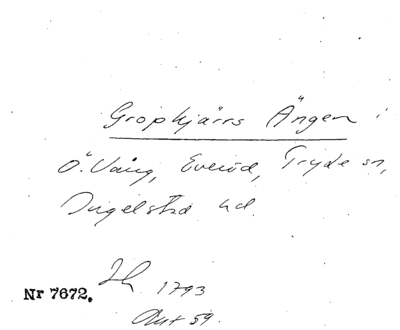 Gropkjärrs Ängen i
Ö. Vång, Everöd, Tryde sn,
Ingelstad hd.
1793
Nr 7672.
Akt 59.